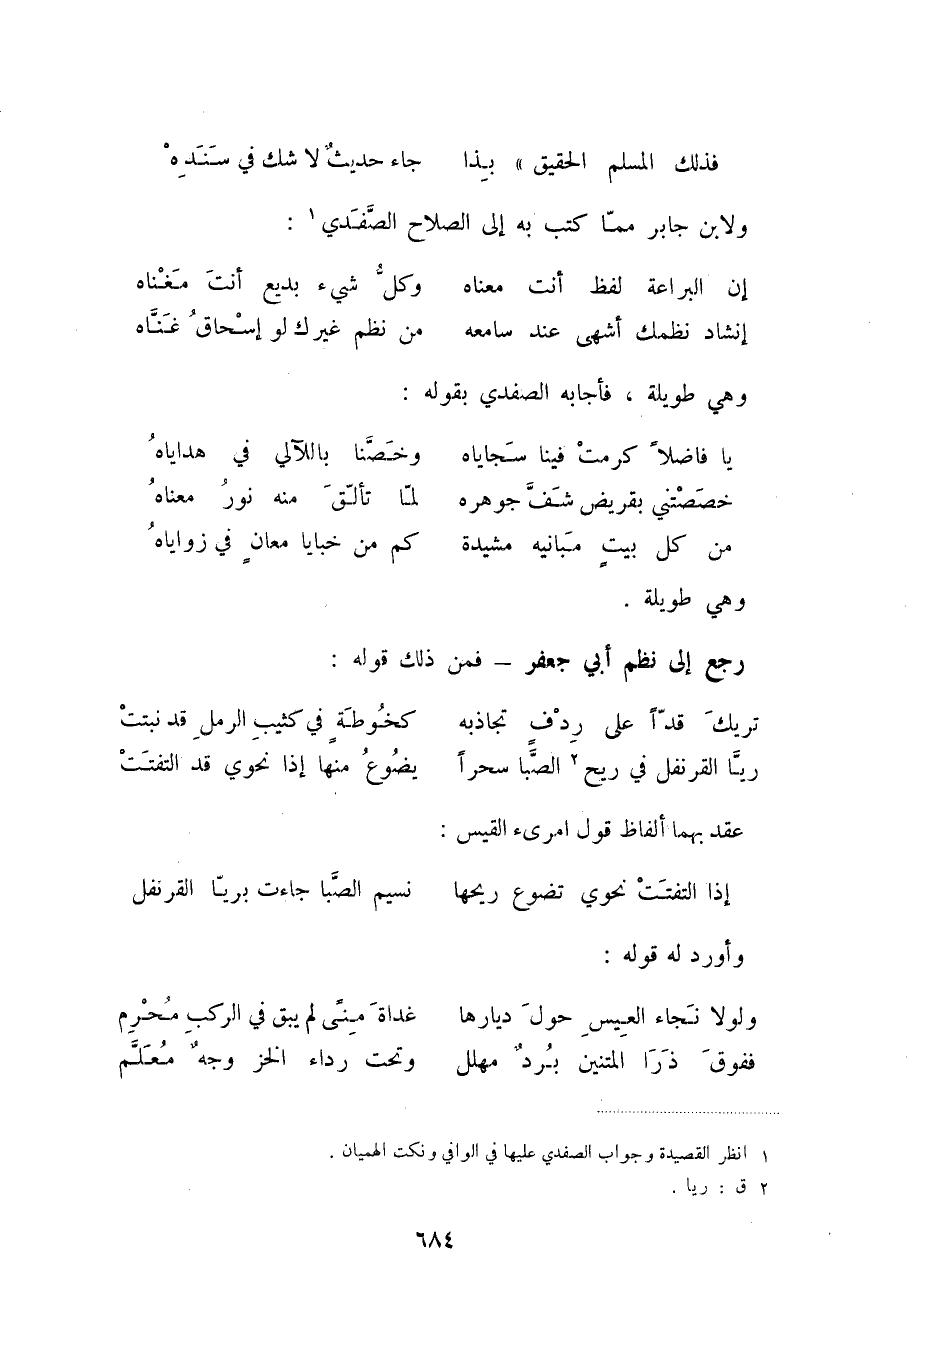 فذلك المسلم الحقيق » بِذا جاء حديثٌ لا شك في سَنَدِهْ
ولابن جابر ممّا كتب به إلى الصلاح الصَّفَدي١ :
إن البراعة لفظ أنت معناه وكلُّ شيء بديع أنتَ مَغْناه
إنشاد نظمك أشهى عند سامعه من نظم غيرك لو إسْحاقُ غَنَّاه
وهي طويلة ، فأجابه الصفدي بقوله :
يا فاضلاً كرمتْ فينا سَجاياه وخَصَّنا باللآلي في هداياهُ
خصَصْتني بقريض شَفَّ جوهره لمّا تألّقَ منه نورُ معناهُ
من كل بيتٍ مَبانيه مشيدة كم من خبايا معانٍ في زواياهُ
وهي طويلة .
رجع إلى نظم أبي جعفر – فمن ذلك قوله :
تريكَ قدّاً على رِدْفٍ تجاذبه كخُوطَةٍ في كثيبِ الرملِ قد نبتتْ
ريَّا القرنفل في ريح٢ الصَّبا سحراً يضُوعُ منها إذا نحوي قد التفتَتْ
عقد بهما ألفاظ قول امرىء القيس :
إذا التفتَتْ نحوي تضوع ريحها نسيم الصَّبا جاءت بريّا القرنفل
وأورد له قوله :
ولولا نَجاء العِيسِ حولَ ديارها غداةَ مِنًى لم يبق في الركبِ مُحْرِم
ففوقَ ذَرَا المتنين بُردٌ مهلل وتحت رداء الخز وجهٌ مُعَلَّم
١ انظر القصيدة وجواب الصفدي عليها في الوافي ونكت الهميان .
٢ ق : ريا .
٦٨٤